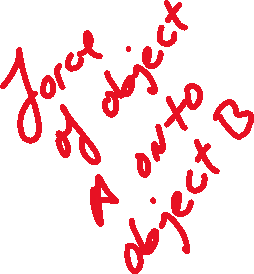 force
of object
A onto
object B